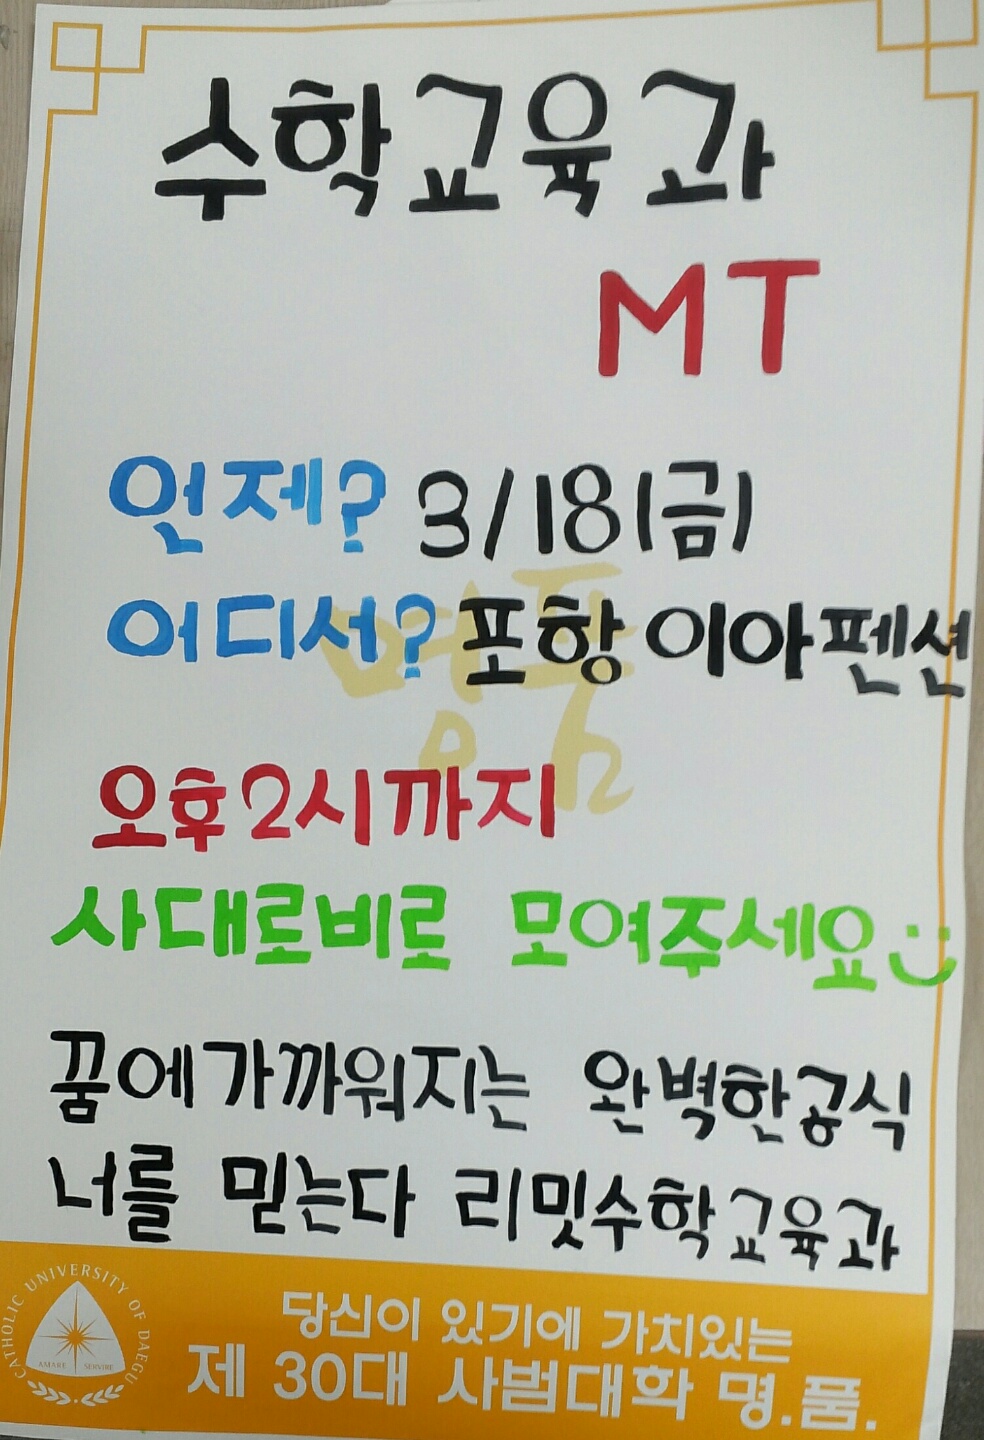 수학교육과
MT
언제? 3/18(금)
어디서? 포항 이아펜션
명품
오후2시까지
사대로비로 모여주세요
꿈에가까워지는 완벽한공식
너를 믿는다 리밋수학교육과
CATHOLIC UNIVERSITY OF DAEGU
AMARE SERVIRE
당신이 있기에 가치있는
제 30대 사범대학 명.품.